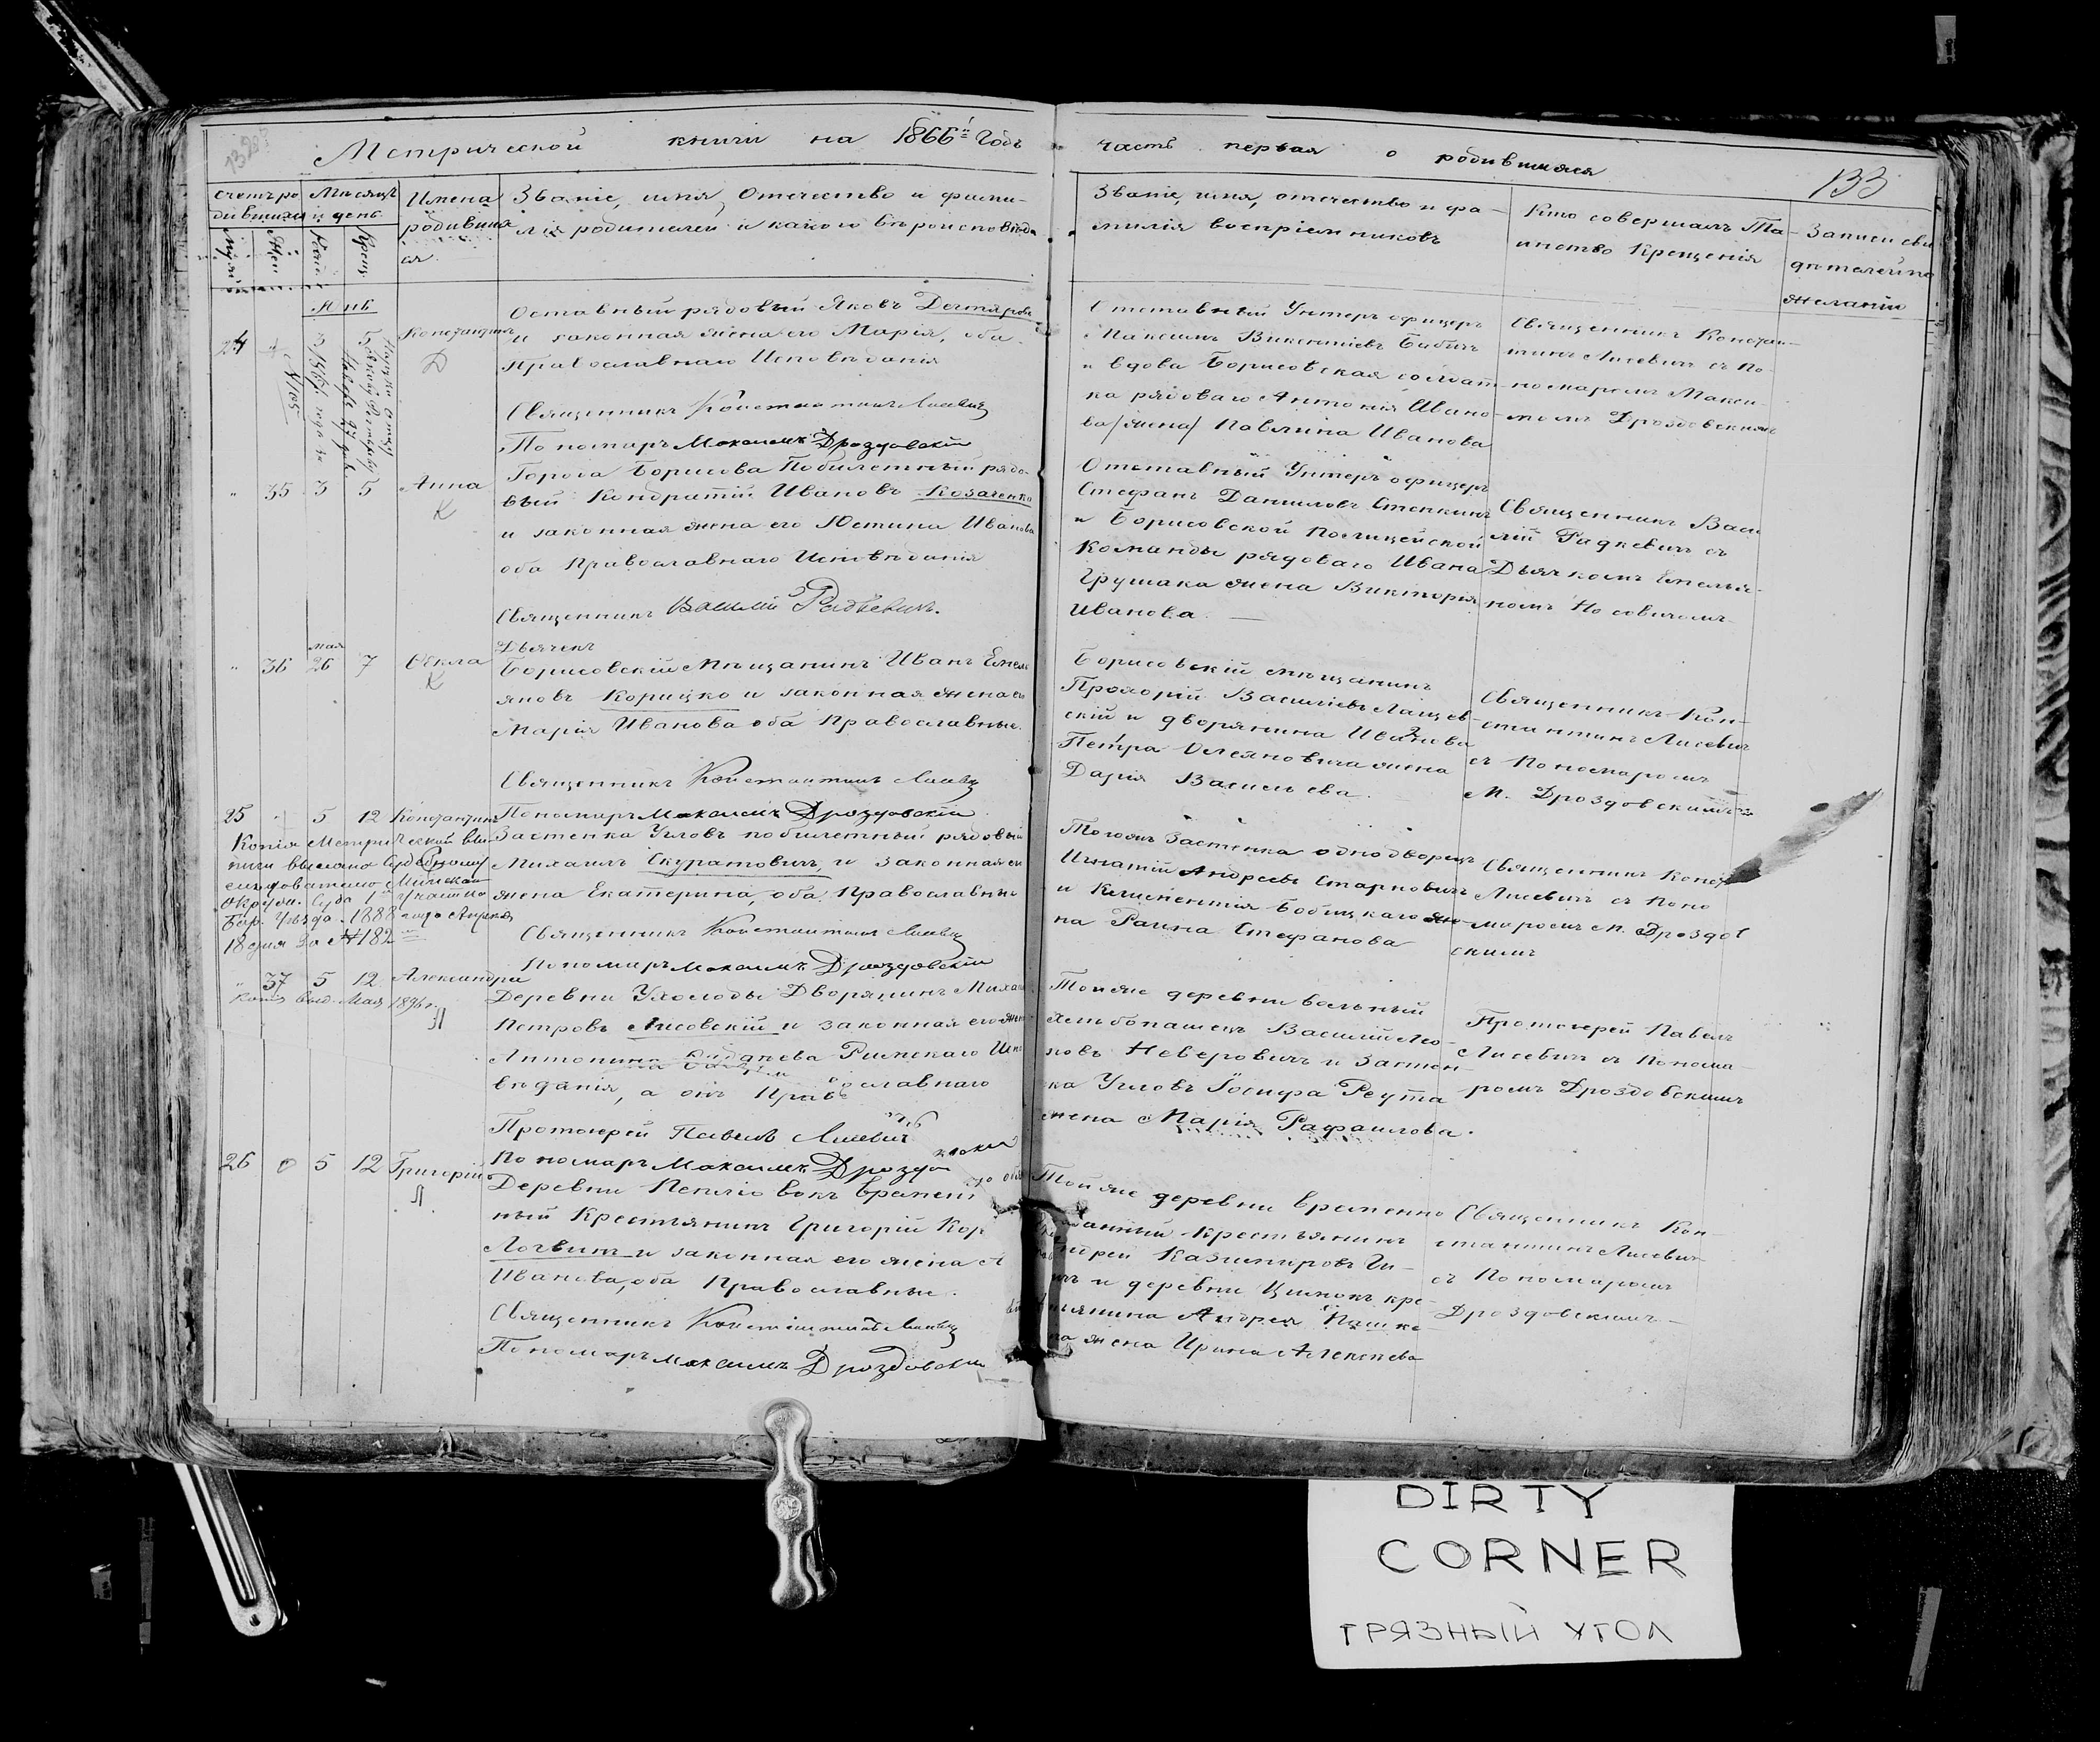 Метрической книги на 1866й Годъ
часть первая о родившихся
133
счетъ ро
дившихся
Мѣсяцъ
и день
Имена
родивших
ся
Званіе, имя, Отечество и фами-
лія родителей и какого вѣроисповѣда
Званіе, имя, отечество и фа-
милія воспріемниковъ
Кто совершалъ Та-
инство Крещенія
Записи сви
дѣтелей по
желанію
24
5
Константинъ
Д
Оставный рядовый Яковъ Дегтярова
и законная жена его Марія, оба
Православнаго Исповѣданія
Священникъ Константинъ Лисевич
Пономарь Максимъ Дроздовскій
Отставный Унтеръ офицеръ
Максимъ Викентіевъ Бабичъ
и вдова Борисовская солдат-
ка рядоваго Антонія Ивано-
ва /жена/ Павлина Иванова
Священникъ Констан-
тинъ Лисевичъ съ По-
номаремъ Макси-
момъ Дроздовскимъ
" 35 3 5 Анна
К
Города Борисова Побилетный рядо-
вый Кондратій Ивановъ Козаченко
и законная жена его Юстина Иванова
оба Православнаго Исповѣданія
Священникъ Василій Радкевичъ.
Дьячекъ
Отставный Унтеръ офицеръ
Стефанъ Даниловъ Стенкинъ
и Борисовской Полицейской
Команды рядоваго Ивана
Грушака жена Викторія
Иванова.
Священникъ Васи
лій Радкевичъ съ
Дьячкомъ Емелья-
номъ Носовичомъ
мая
" 36 26 7 Ѳекла
К
Борисовскій Мѣщанинъ Иванъ Емель
яновъ Корицко и законная жена его
Марія Иванова оба Православные.
Священникъ Константинъ Лисевич
Пономарь Максимъ Дроздовскій
Борисовскій мѣщанинъ
Прохорій Васильевъ
скій и дворянина Иванова
Петра жена
Дарія Васильева.
Священникъ Кон-
стантинъ Лисевич
съ Пономаремъ
М. Дроздовскимъ
25 5 12 Константинъ
Копія Метрической вы-
писи выслана Судебному
слѣдователю Минскаго
Окружн. Суда 1го участка
Бор. Уѣзда 1888 года Апрѣля
18 дня за №182
Застенка Угловъ побилетный рядовый
Михаилъ Скуратовичъ, и законная его
жена Екатерина, оба Православные
Священникъ Константинъ Лисевич
Пономарь Максимъ Дроздовскій
Тогожъ Застенка однодворецъ
Игнатій Андреевъ Старковичъ
и Климентія Бобицкаго же-
на Раина Стефанова
Священникъ Конст
Лисевичъ съ Поно
маремъ М. Дроздов
скимъ
" 37 5 12 Александра
Копія выд. Мая 1896 г.
Л
Деревни Ухолоды Дворянинъ Михаилъ
Петровъ Лисовскій и законная его жен
Антонина Римскаго Испо
вѣданія, а онъ Православнаго
Протоіерей Павелъ Лисевич
Пономарь Максимъ Дроздо
Тойже деревни вольный
хлѣбопашецъ Василій Лео-
новъ Неверовичъ и Застен-
ка Угловъ Іосифа Реута
жена Марія Рафаилова.
Протоіерей Павелъ
Лисевичъ съ Понома-
ремъ Дроздовскимъ
26 5 12 Григорій
Л
Деревни временно обя
ный Крестьянинъ Григорій Кор
Логвинъ и законная его жена А
Иванова, оба Православные.
Священникъ Константинъ Лисевич
Пономарь Максимъ Дроздовскій
Тойже деревни временно
занный крестьянинъ
Андрей Казимировъ Ги-
и деревни кре-
стьянина Андрея
на жена Ирина Алексѣева
Священникъ Кон-
стантинъ Лисевич
съ Пономаремъ
Дроздовскимъ
DIRTY
CORNER
ГРЯЗНЫЙ УГОЛ